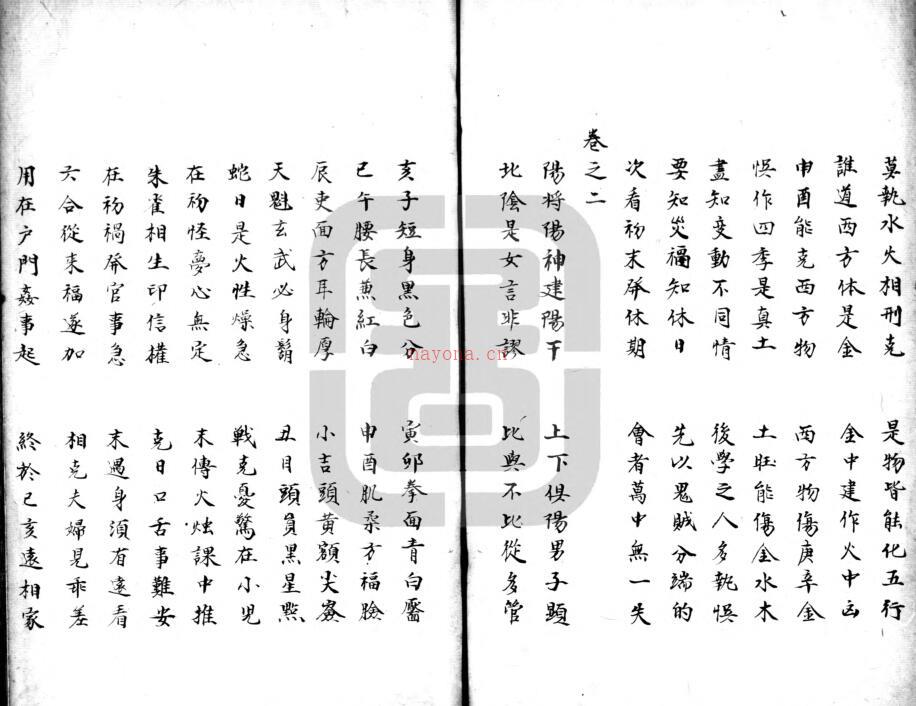 莫執水火相刑克　是物皆能化五行
誰道西方体是金　金中建作火中
申酉能克西方物　西方物傷庚辛金
悞作四季是真土　土旺能傷金水木
盡知变動不同情　後學之人多執悞
要知災福知休日　先以鬼賊分端的
次看初末發休期　會者萬中無一失
卷之二
陽将陽神建陽干　上下俱陽男子顯
北陰是女言非謬　比與不比從多管
亥子短身黑色分　寅卯拳面青白靨
巳午腰長蕉紅白　申酉肌柔方福臉
辰吏面方耳輪厚　小吉頭黄額尖
天魁玄武必身鬍　丑月頭員黑星㸃
蛇日是火性燥急　戰克憂驚在小児
在初怪夢心無定　末傳火燭課中推
朱雀相生印信權　克日口舌事難安
在初禍發官事急　末遇身須有遠看
六合從来福遂加　相克夫婦見乖差
用在户門姦事起　終於巳亥遠相家
nayona.cn